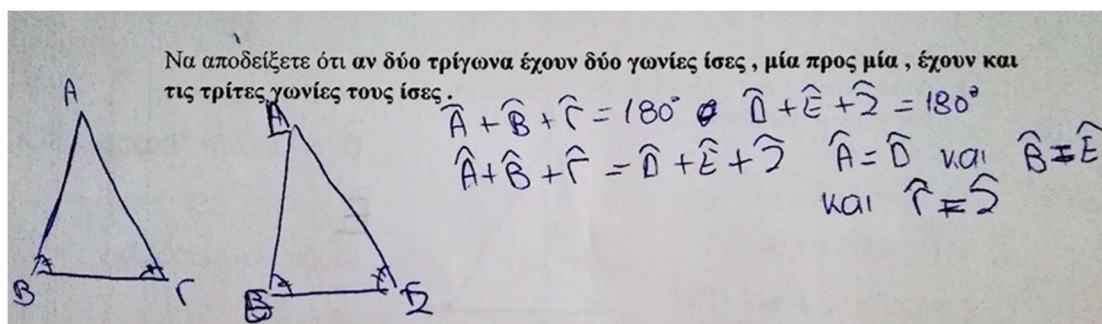 Να αποδείξετε ότι αν δύο τρίγωνα έχουν δύο γωνίες ίσες , μία προς μία , έχουν και
τις τρίτες γωνίες τους ίσες .
Â + B̂ + Γ̂ = 180° D̂ + Ê + Ẑ = 180°
Â + B̂ + Γ̂ = D̂ + Ê + Ẑ Â = D̂ και B̂ = Ê
και Γ̂ = Ẑ
A
B Γ